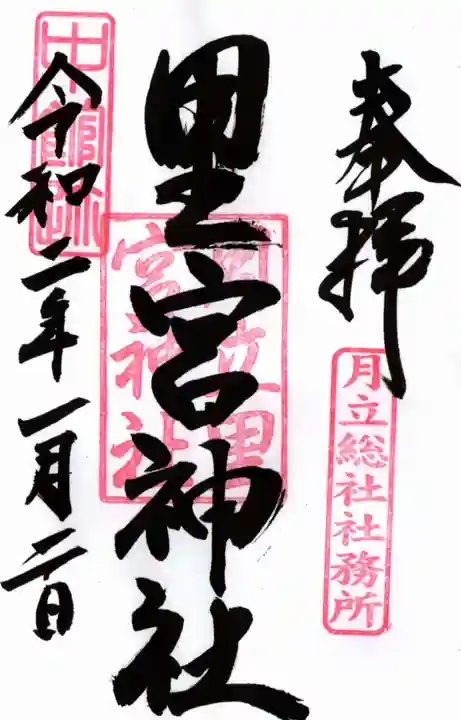 奉拝
月立総社社務所
里宮神社
月立里
宮神社
令和二年一月二日
中館跡